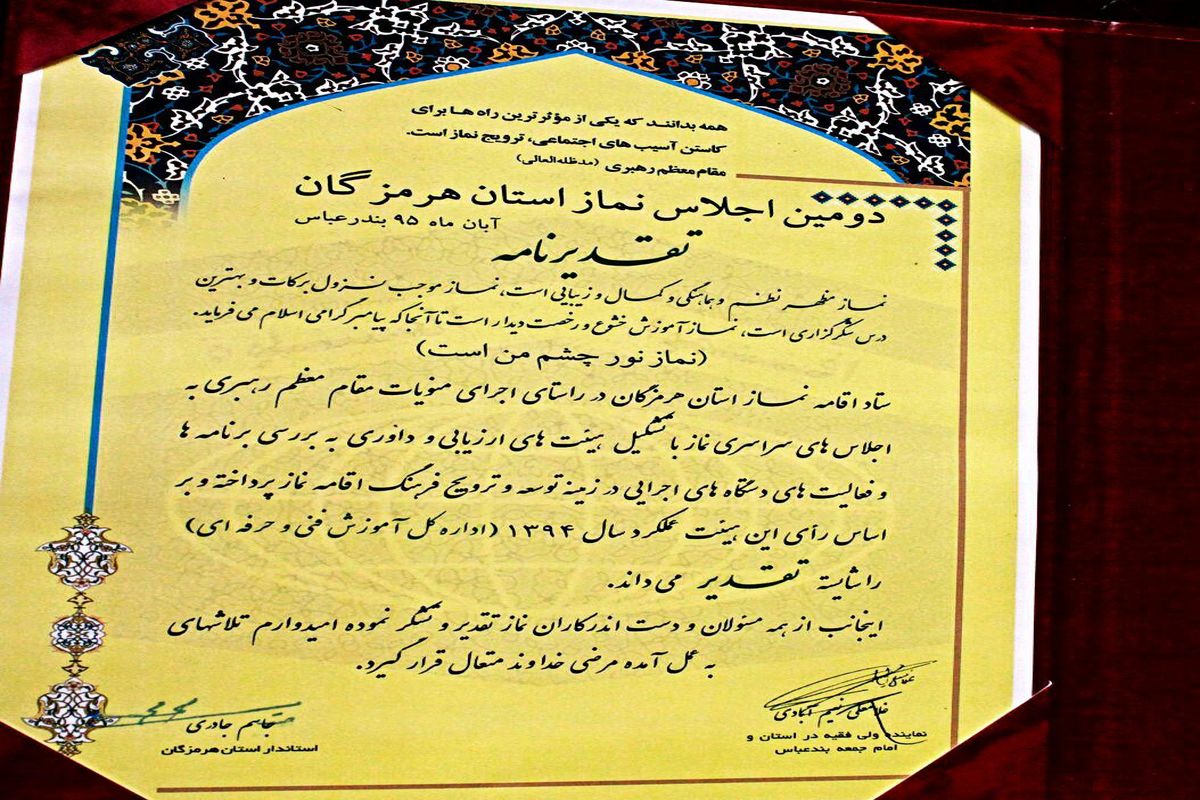 همه بدانند که یکی از مؤثرترین راه ها برای
کاستن آسیب های اجتماعی، ترویج نماز است.
مقام معظم رهبری (مدظله‌العالی)
دومین اجلاس نماز استان هرمزگان
آبان ماه ۹۵ بندرعباس
تقدیرنامه
نماز مظهر نظم و هماهنگی و کمال و زیبایی است، نماز موجب نزول برکات و بهترین
درس شکرگزاری است، نماز آموزش خشوع و رخصت دیدار است تا آنجا که پیامبر گرامی اسلام می فرماید.
(نماز نور چشم من است)
ستاد اقامه نماز استان هرمزگان در راستای اجرای منویات مقام معظم رهبری به
اجلاس های سراسری نماز با تشکیل هیئت های ارزیابی و داوری به بررسی برنامه ها
و فعالیت های دستگاه های اجرایی در زمینه توسعه و ترویج فرهنگ اقامه نماز پرداخته و بر
اساس رأی این هیئت عملکرد سال ۱۳۹۴ (اداره کل آموزش فنی و حرفه ای)
را شایسته تقدیر می داند.
اینجانب از همه مسئولان و دست اندرکاران نماز تقدیر و تشکر نموده امیدوارم تلاشهای
به عمل آمده مرضی خداوند متعال قرار گیرد.
غلامعلی نعیم آبادی
نماینده ولی فقیه در استان و
امام جمعه بندعباس
جاسم جادری
استاندار استان هرمزگان